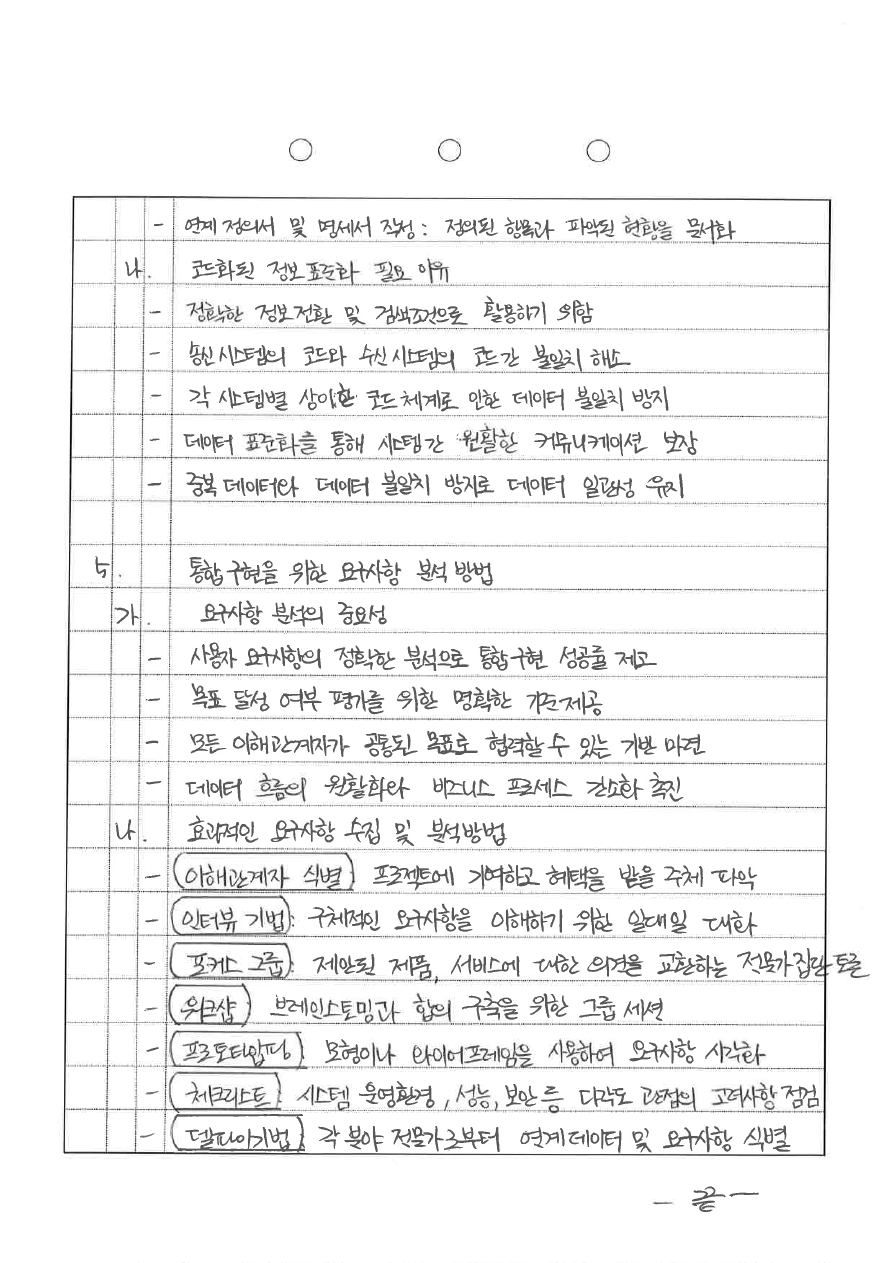 - 연계 정의서 및 명세서 작성 : 정의된 항목과 파악된 현황을 문서화
나. 코드화된 정보 표준화 필요 이유
- 정확한 정보 전환 및 검색조건으로 활용하기 위함
- 송신 시스템의 코드와 수신 시스템의 코드 간 불일치 해소
- 각 시스템별 상이한 코드 체계로 인한 데이터 불일치 방지
- 데이터 표준화를 통해 시스템 간 원활한 커뮤니케이션 보장
- 중복 데이터와 데이터 불일치 방지로 데이터 일관성 유지
5. 통합 구현을 위한 요구사항 분석 방법
가. 요구사항 분석의 중요성
- 사용자 요구사항의 정확한 분석으로 통합 구현 성공률 제고
- 목표 달성 여부 평가를 위한 명확한 기준 제공
- 모든 이해관계자가 공통된 목표로 협력할 수 있는 기반 마련
- 데이터 흐름의 원활화와 비즈니스 프로세스 간소화 촉진
나. 효과적인 요구사항 수집 및 분석방법
- 이해관계자 식별 : 프로젝트에 기여하고 혜택을 받을 주체 파악
- 인터뷰 기법 : 구체적인 요구사항을 이해하기 위한 일대일 대화
- 포커스 그룹 : 제안된 제품, 서비스에 대한 의견을 교환하는 전문가 집단 토론
- 워크샵 : 브레인스토밍과 합의 구축을 위한 그룹 세션
- 프로토타이핑 : 모형이나 와이어프레임을 사용하여 요구사항 시각화
- 체크리스트 : 시스템 운영환경, 성능, 보안 등 다각도 관점의 고려사항 점검
- 델파이기법 : 각 분야 전문가로부터 연계 데이터 및 요구사항 식별
- 끝 -